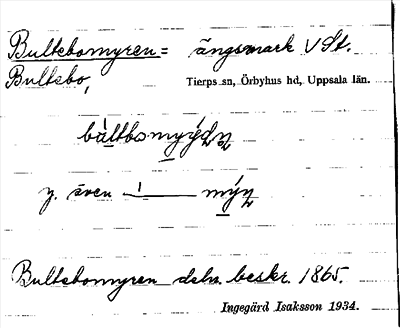 Bultebomyren = ängsmark V St.
Bultebo,
Tierps sn, Örbyhus hd, Uppsala län.
y. även
Bultebomyren delv. beskr. 1865.
Ingegärd Isaksson 1934.